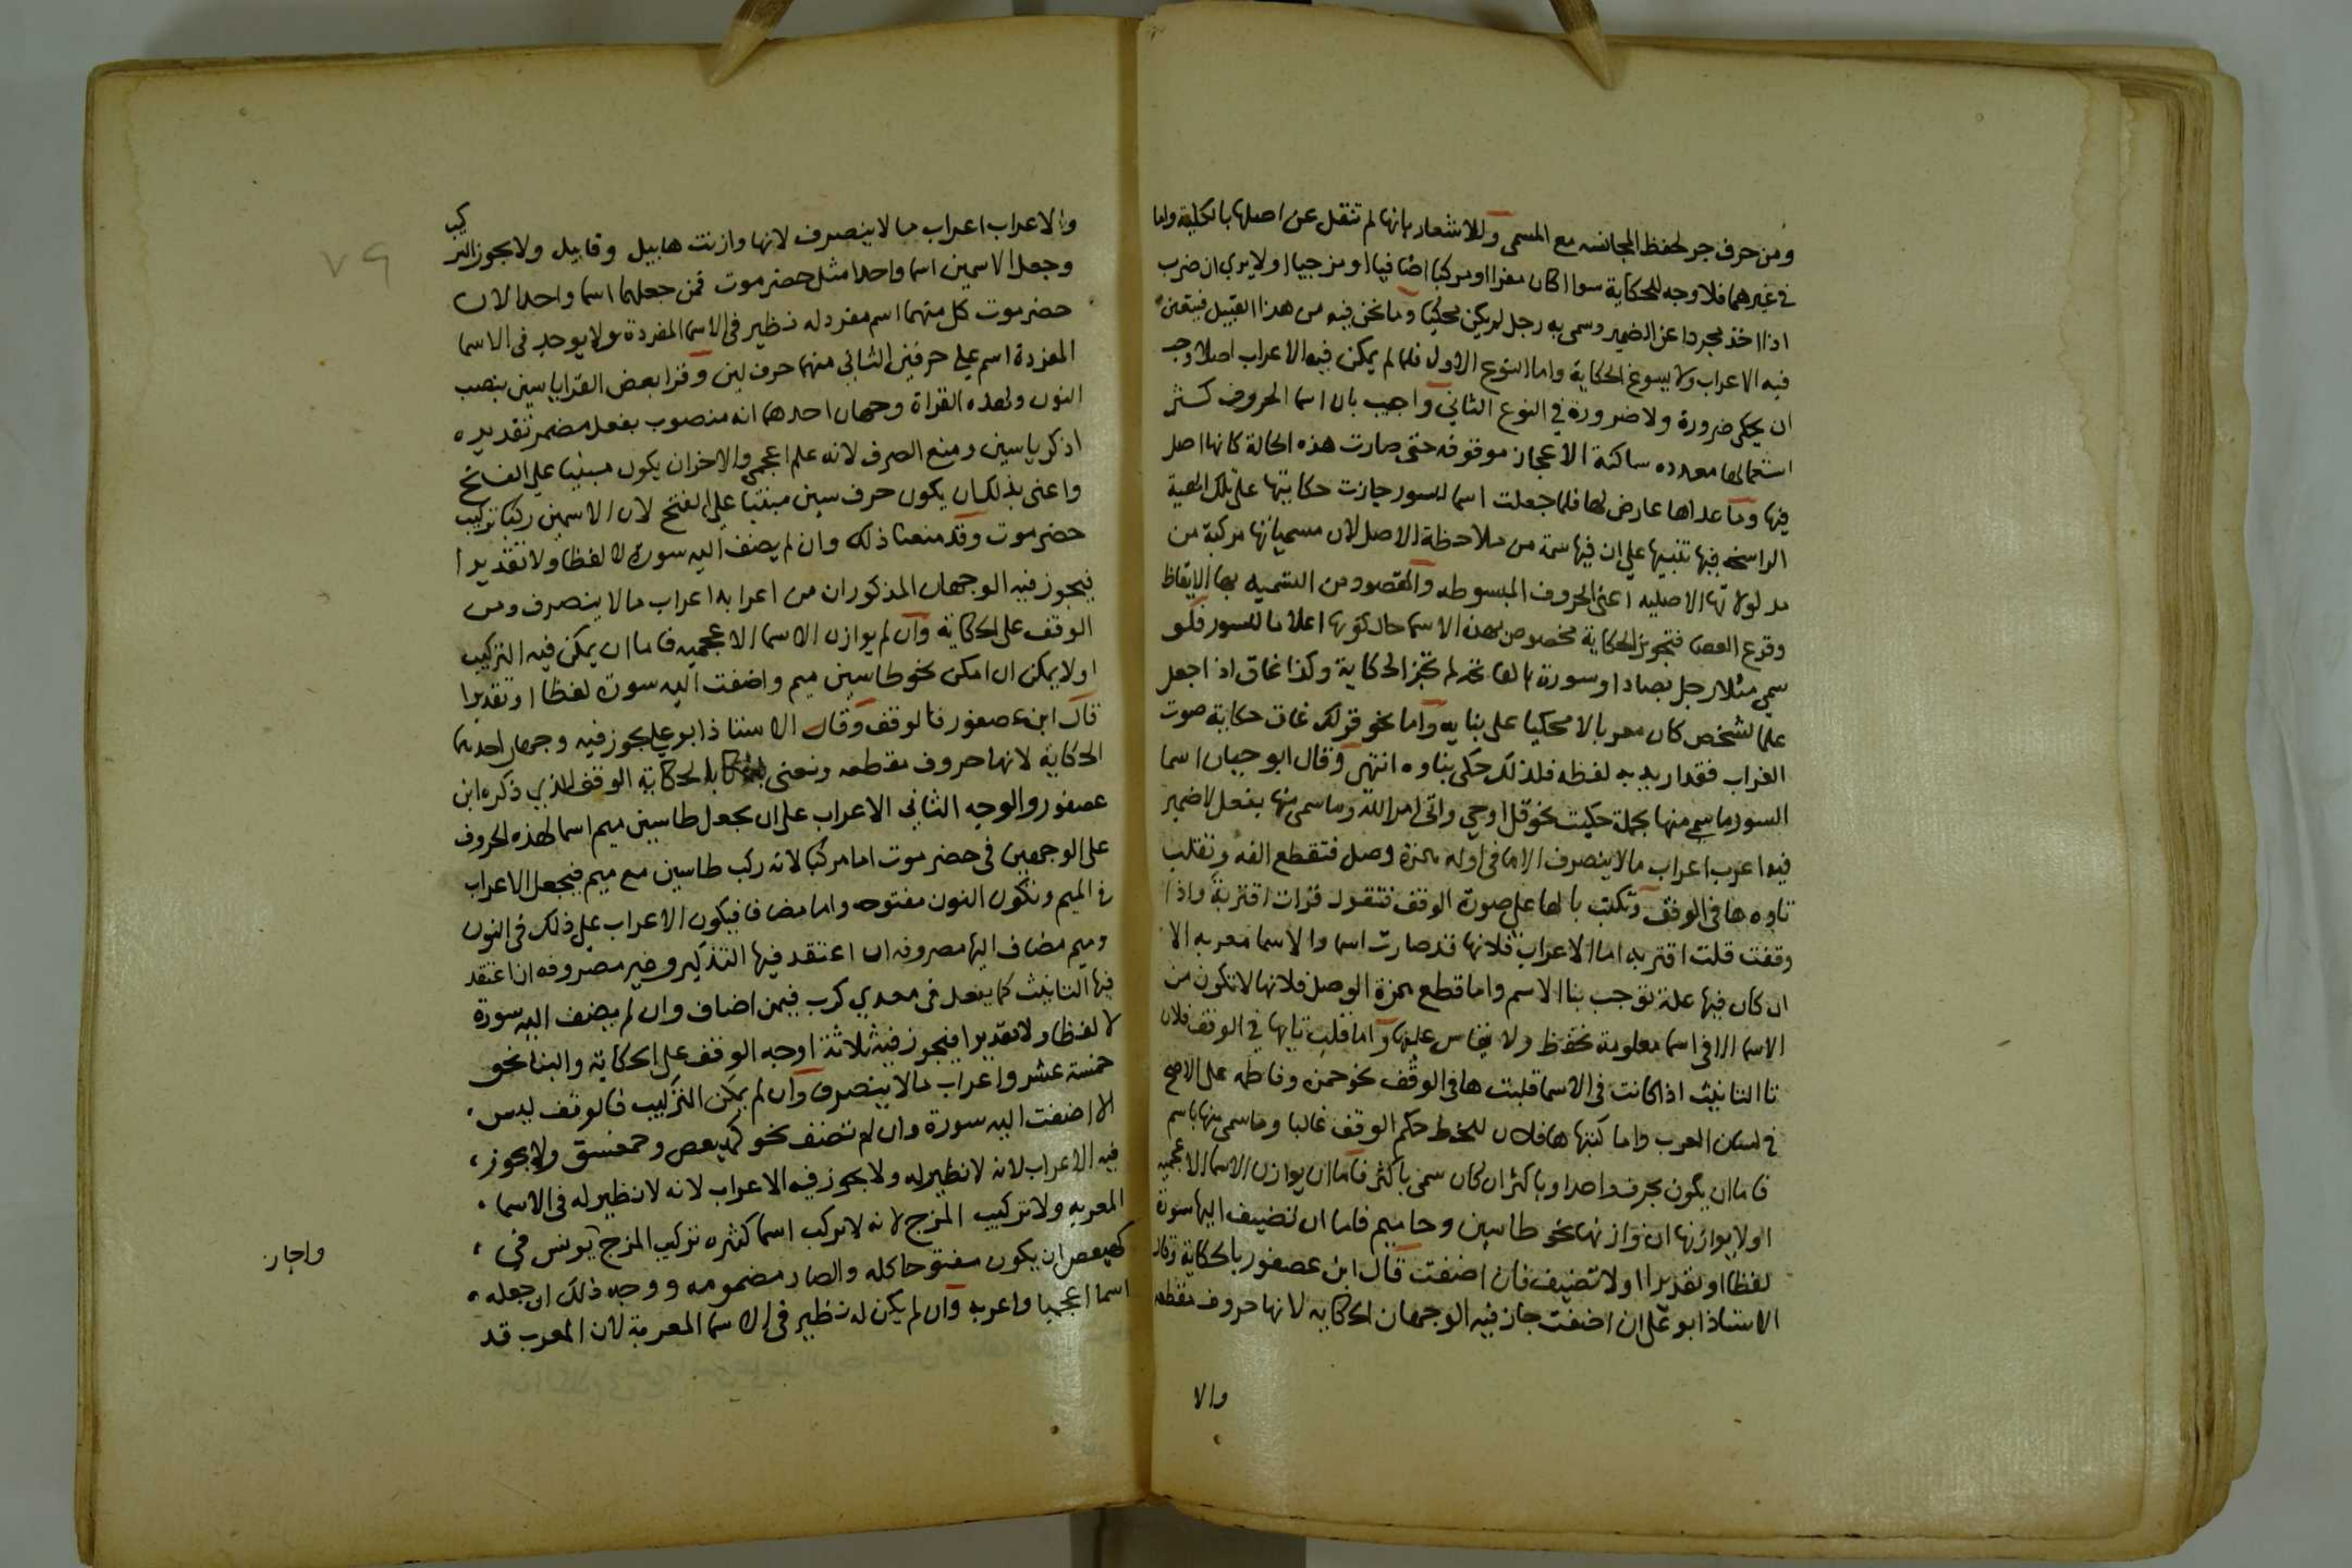 ومن حرف جر لحفظ المجانسه مع المسمى وللاشعار بانها لم تنقل عن اصلها بالكلية واما
في غيرهما فلا وجه للحكاية سوا كان مفردا او مركبا اضافيا او مزجيا اولا يري ان ضرب
اذا اخذ مجردا عن الضمير وسمى به رجل لم يكن محكيا وما نحن فيه من هذا القبيل فيتعين
فيه الاعراب ولا يسوغ الحكاية واما النوع الاول فلما لم يمكن فيه الاعراب اصلا وجب
ان يحكى ضرورة ولا ضرورة في النوع الثاني واجيب بان اسما الحروف كثر
استعمالها معدده ساكنة الاعجاز موقوفه حتى صارت هذه الحالة كانها اصل
فيها وما عداها عارض لها فلما جعلت اسما للسور جازت حكايتها على تلك الهية
الراسخه فيها تنبيها على ان فيها سمة من ملاحظة الاصل لان مسمياتها مركبة من
مدلولاتها الاصليه اعنى الحروف المبسوطه والمقصود من التسميه بها الايقاظ
وقرع العصا فتجويز الحكاية مخصوص بهذه الاسما حال كونها اعلاما للسور فلو
سمي مثلا رجل بصاد او سورة بالفاتحه لم تجز الحكاية وكذا غاق اذا جعل
علما لشخص كان معربا لا محكيا على بنايه واما نحو قولك غاق حكاية صوت
الغراب فقد اريد به لفظه فلذلك حكى بناوه انتهى وقال ابو حيان اسما
السور ما سمي منها بجملة حكيت نحو قل اوحي واتى امر الله وما سمى منها بفعل لا ضمير
فيه اعرب اعراب ما لا ينصرف الا ما فى اوله همزة وصل فتقطع الفه وتقلب
تاوه ها فى الوقف وتكتب بالها على صورة الوقف فتقول قرات اقتربة واذا
وقفت قلت اقتربه اما الاعراب فلانها قد صارت اسما والاسما معربه الا
ان كان فيها علة توجب بنا الاسم واما قطع همزة الوصل فلانها لا تكون من
الاسما الا فى اسما معلومة تحفظ ولا يقاس عليها واما قلب تايها في الوقف فلان
تا التانيث اذا كانت فى الاسما قلبت ها فى الوقف نحو حمزه وفاطمه على الاصح
في لسان العرب واما كتبها ها فلان للخط حكم الوقف غالبا وما سمى منها باسم
فاما ان يكون بحرف واحد او باكثر ان كان سمى باكثر فاما ان يوازن الاسما الاعجميه
اولا يوازنها ان وازنها نحو طاسين وحاميم فاما ان تضيف اليها سورة
لفظا او تقديرا اولا تضيف فان اضفت قال ابن عصفور بالحكاية وقال
الاستاذ ابو على ان اضفت جاز فيه الوجهان الحكايه لانها حروف مقطعه
والا
والاعراب اعراب ما لا ينصرف لانها وازنت هابيل وقابيل ولا يجوز التركيب
وجعل الاسمين اسما واحدا مثل حضرموت فمن جعلهما اسما واحدا لان
حضرموت كل منهما اسم مفرد له نظير فى الاسما المفردة ولا يوجد فى الاسما
المفردة اسم على حرفين الثاني منهما حرف لين وقرا بعض القرا ياسين بنصب
النون ولهذه القراة وجهان احدهما انه منصوب بفعل مضمر تقديره
اذكر ياسين ومنع الصرف لانه علم اعجمي والاخر ان يكون مبنيا على الفتح
واعنى بذلك ان يكون حرف سين مبنيا على الفتح لان الاسمين ركبا تركيب
حضرموت وقد منعنا ذلك وان لم يضف اليه سورة لا لفظا ولا تقديرا
فيجوز فيه الوجهان المذكوران من اعرابه اعراب ما لا ينصرف ومن
الوقف على الحكاية وان لم يوازن الاسما الاعجميه فاما ان يمكن فيه التركيب
اولا يمكن ان امكن نحو طاسين ميم واضفت اليه سورة لفظا او تقديرا
قال ابن عصفور فالوقف وقال الاستاذ ابو علي يجوز فيه وجهان احدهما
الحكاية لانها حروف مقطعه ونعنى بالحكاية الوقف الذي ذكره ابن
عصفور والوجه الثاني الاعراب على ان يجعل طاسين ميم اسما لهذه الحروف
على الوجهين فى حضرموت اما مركبا لانه ركب طاسين مع ميم فيجعل الاعراب
في الميم وتكون النون مفتوحه واما مضافا فيكون الاعراب على ذلك فى النون
وميم مضاف اليها مصروفه ان اعتقد فيها التذكير وغير مصروفه ان اعتقد
فيها التانيث كما يفعل فى معدي كرب فيمن اضاف وان لم يضف اليه سورة
لا لفظا ولا تقديرا فيجوز فيه ثلاثة اوجه الوقف على الحكاية والبنا نحو
خمسة عشر واعراب ما لا ينصرف وان لم يمكن التركيب فالوقف ليس
الا اضفت اليه سورة وان لم تضف نحو كهيعص وحمعسق ولا يجوز
فيه الاعراب لانه لا نظير له ولا يجوز فيه الاعراب لانه لا نظير له فى الاسما
المعربه ولا تركيب المزج لانه لا تركب اسما كثيره تركيب المزج يونس فى
كهيعص ان يكون مفتوحا كله والصاد مضمومه ووجه ذلك ان جعله
اسما اعجميا واعربه وان لم يكن له نظير فى الاسما المعربة لان المعرب قد
واجاز
٧٩